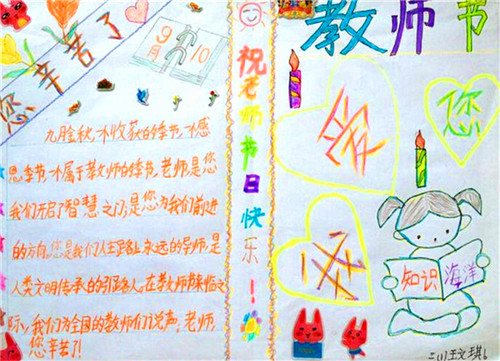 您辛苦了
9月10
九月金秋,不收获的季节,不感
恩季节,不属于教师的季节,老师,是您
我们开启了智慧之门,是您为我们前进
的方向,您是我们人生路上永远的导师,是
人类文明传承的引路人。在教师节来临之
际,我们为全国的教师们说声:老师,
您辛苦了!
祝老师节日快乐!
教师节
爱
您
知识海洋